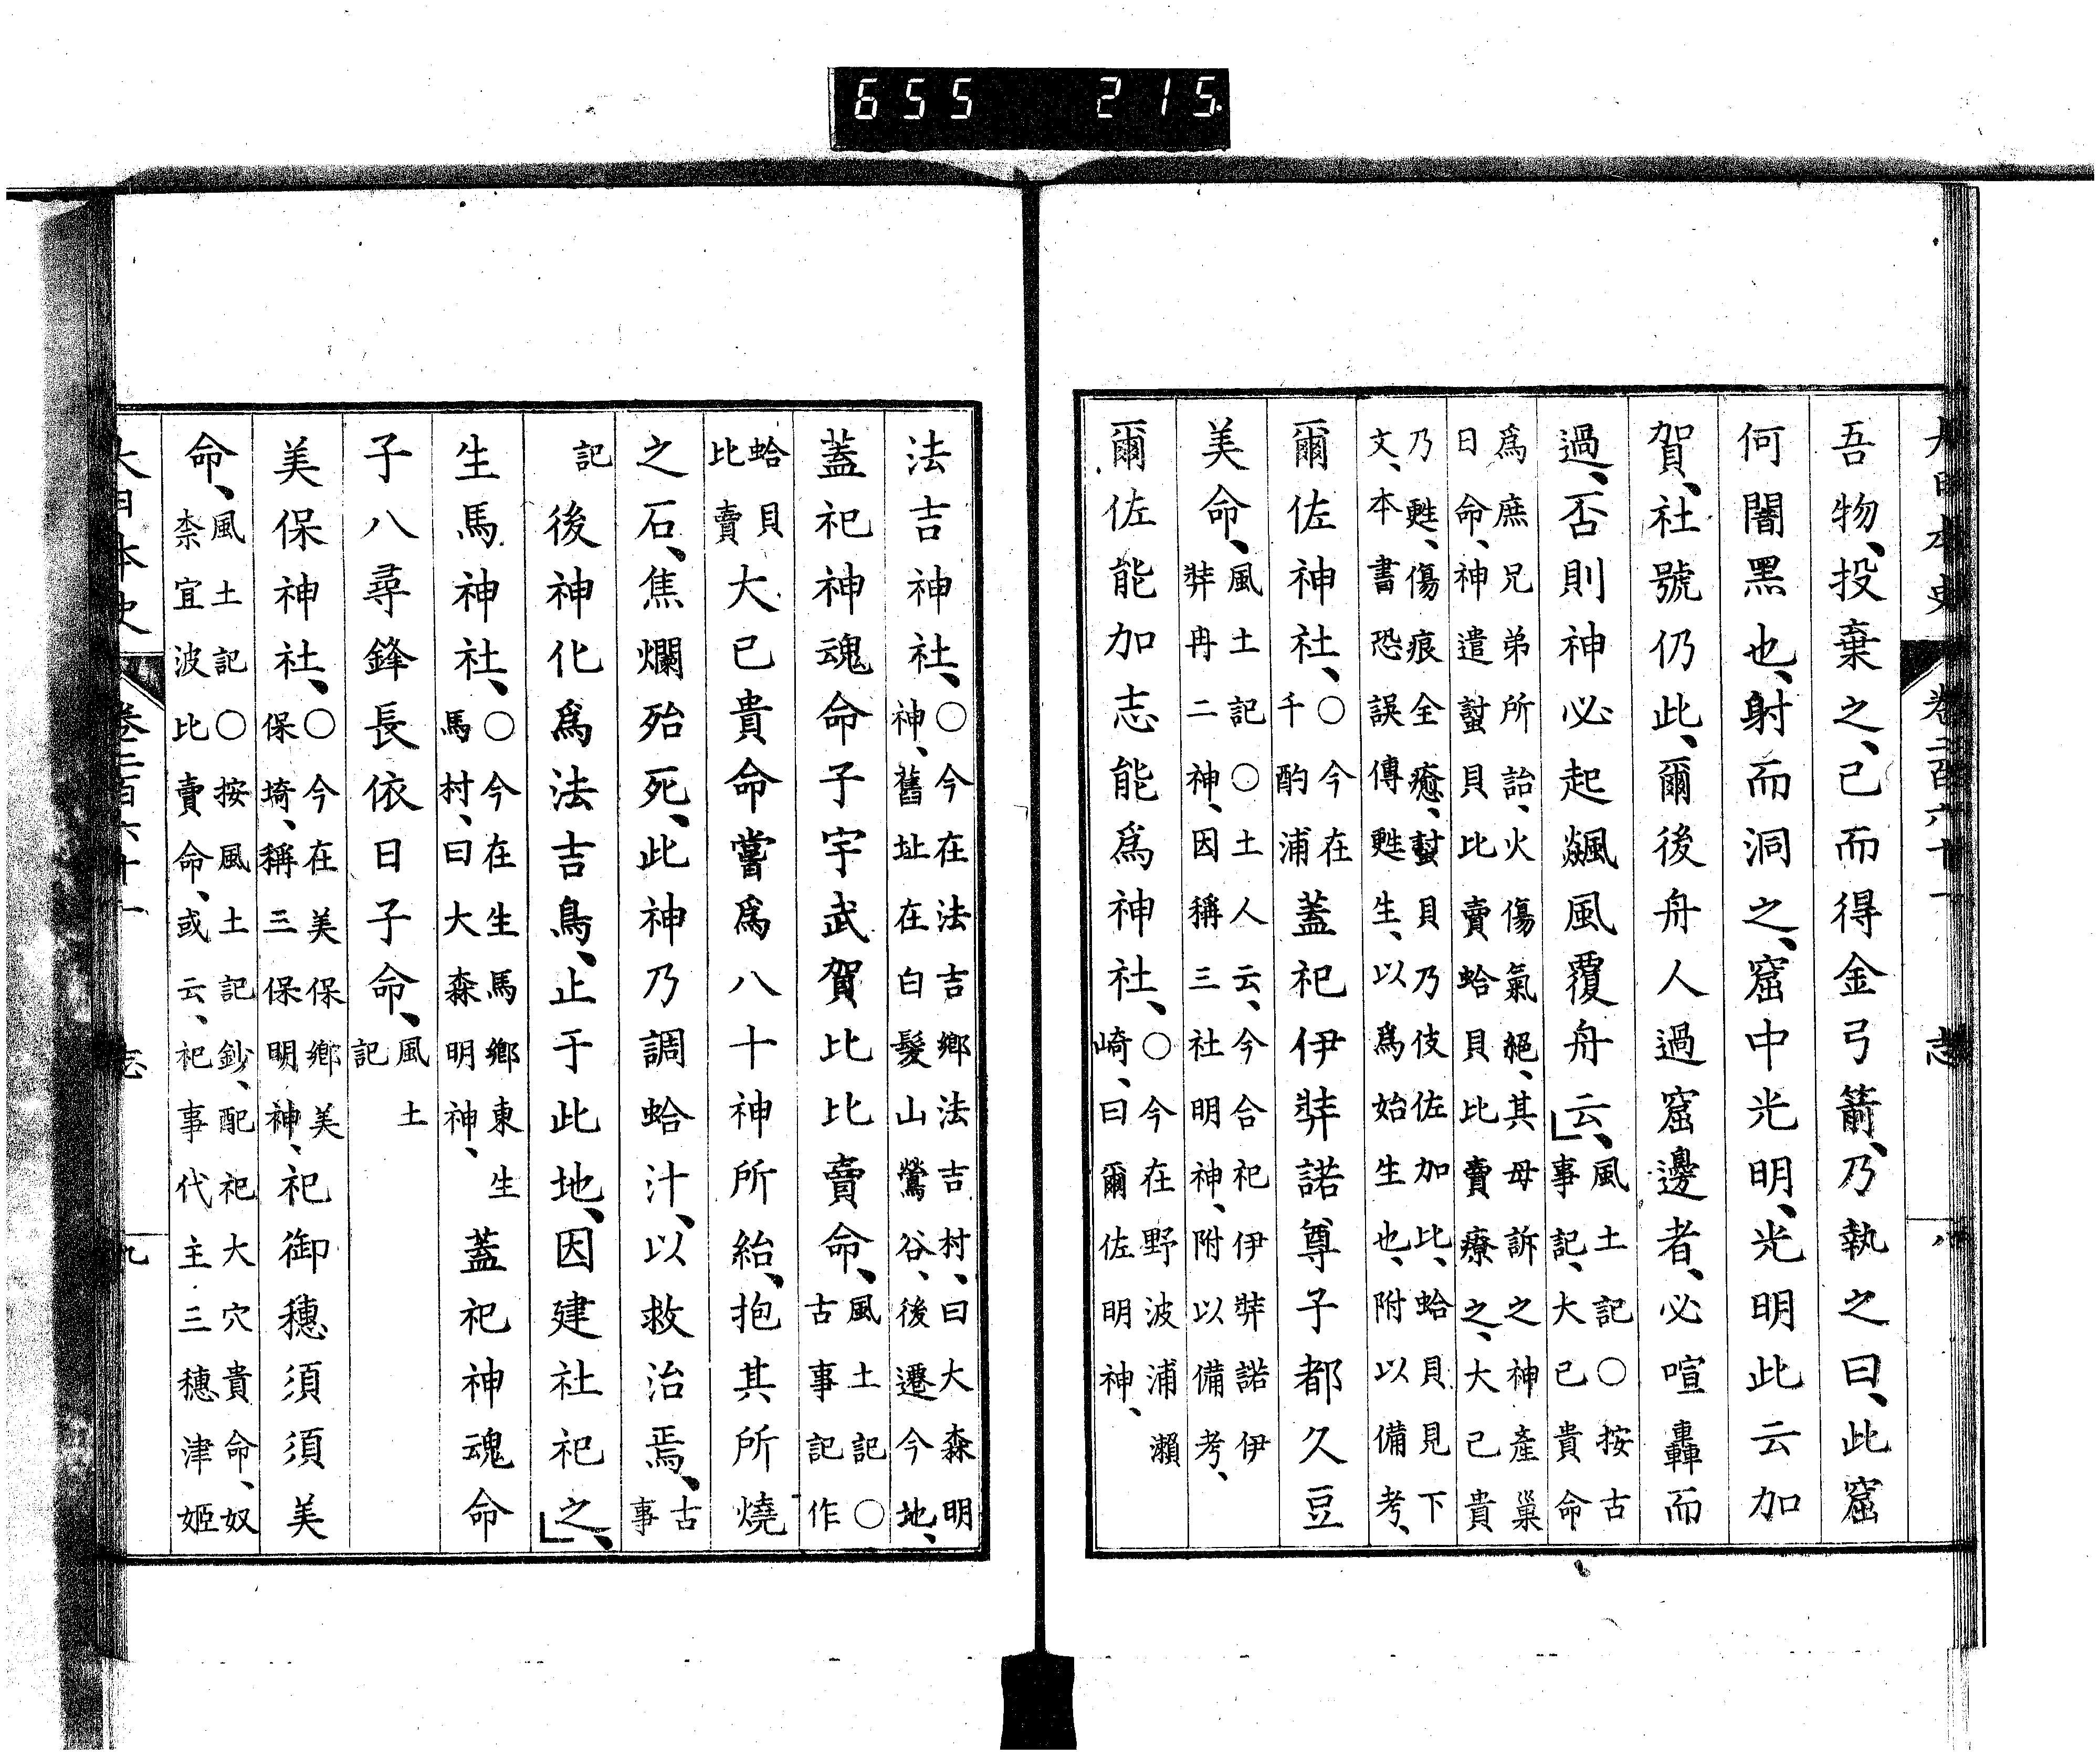 大日本史 卷二百六十一 志 八
吾物、投棄之、已而得金弓箭、乃執之曰、此窟
何闇黑也、射而洞之、窟中光明、光明此云加
賀、社號仍此、爾後舟人過窟邊者、必喧轟而
過、否則神必起飊風覆舟云、」風土記○按古事記、大已貴命
爲庶兄弟所詒、火傷氣絕、其母訴之神產巢日命、神遣𧏛貝比賣蛤貝比賣療之、大己貴
乃甦、傷痕全癒、𧏛貝乃伎佐加比、蛤貝見下文、本書恐誤傳甦生、以爲始生也、附以備考、
爾佐神社、○今在千酌浦蓋祀伊弉諾尊子都久豆
美命、風土記○土人云、今合祀伊弉諾伊弉冉二神、因稱三社明神、附以備考、
爾佐能加志能爲神社、○今在野波浦瀨崎、曰爾佐明神、
法吉神社、○今在法吉鄉法吉村、曰大森明神、舊址在白髮山鶯谷、後遷今地、
蓋祀神魂命子宇武賀比比賣命、風土記○古事記作
蛤貝比賣大已貴命嘗爲八十神所紿、抱其所燒
之石、焦爛殆死、此神乃調蛤汁、以救治焉、古事
記後神化爲法吉鳥、止于此地、因建社祀之、」
生馬神社、○今在生馬鄉東生馬村、曰大森明神、蓋祀神魂命
子八尋鋒長依日子命、風土記
美保神社、○今在美保鄉美保埼、稱三保明神、祀御穗須須美
命、風土記○按風土記鈔、配祀大穴貴命、奴奈宜波比賣命、或云、祀事代主三穗津姬
大日本史 卷二百六十一 志 九
655 215